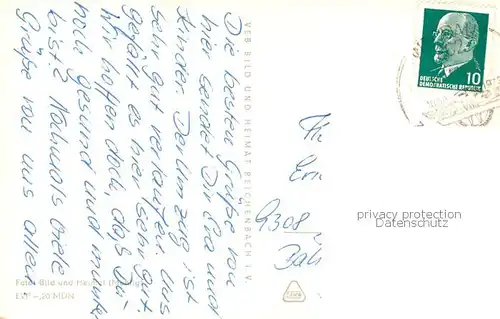 Die besten Grüße von
hier sendet Dir Eva und
Kinder. Der Umzug ist
sehr gut verlaufen. Uns
gefällt es hier sehr gut.
Wir hoffen doch, daß Du
noch gesund und munter
bist? Nochmals viele
Grüße von uns allen
VEB BILD UND HEIMAT REICHENBACH I. V.
Foto: Bild und Heimat
EVP –,20 MDN
10
DEUTSCHE
DEMOKRATISCHE REPUBLIK
Eric
9308
privacy protection
Datenschutz